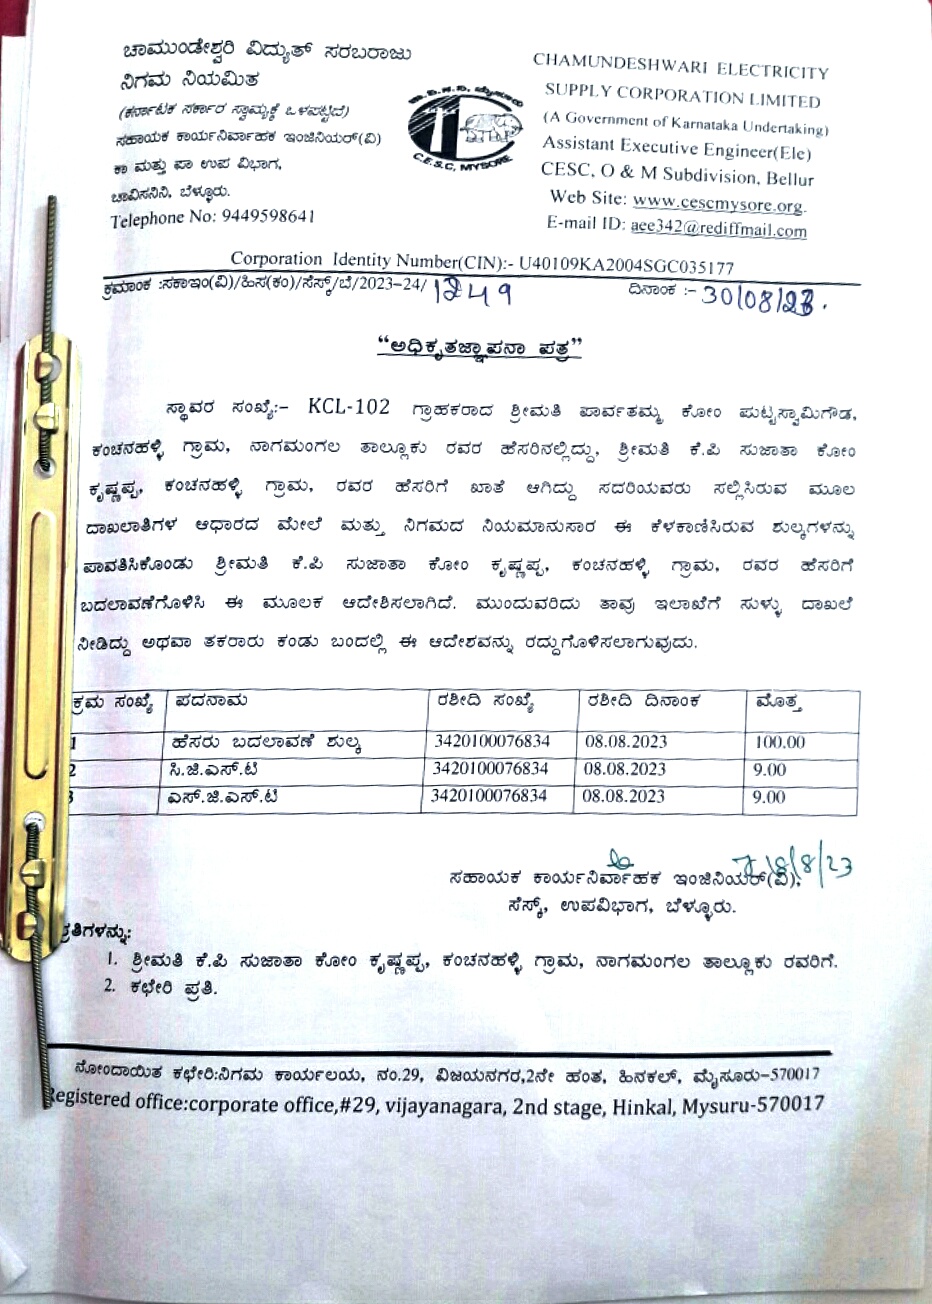 ಚಾಮುಂಡೇಶ್ವರಿ ವಿದ್ಯುತ್ ಸರಬರಾಜು
ನಿಗಮ ನಿಯಮಿತ
(ಕರ್ನಾಟಕ ಸರ್ಕಾರ ಸ್ವಾಮ್ಯಕ್ಕೆ ಒಳಪಟ್ಟಿದೆ)
ಸಹಾಯಕ ಕಾರ್ಯನಿರ್ವಾಹಕ ಇಂಜಿನಿಯರ್(ವಿ)
ಕಾ ಮತ್ತು ಪಾ ಉಪ ವಿಭಾಗ,
ಚಾವಿಸನಿನಿ, ಬೆಳ್ಳೂರು.
Telephone No: 9449598641
C.E.S.C, MYSORE
CHAMUNDESHWARI ELECTRICITY
SUPPLY CORPORATION LIMITED
(A Government of Karnataka Undertaking)
Assistant Executive Engineer(Ele)
CESC, O & M Subdivision, Bellur
Web Site: www.cescmysore.org.
E-mail ID: aee342@rediffmail.com
Corporation Identity Number(CIN):- U40109KA2004SGC035177
ಕ್ರಮಾಂಕ :ಸಕಾಇಂ(ವಿ)/ಹಿಸ(ಕಂ)/ಸೆಸ್ಕ್/ಬೆ/2023-24/1249 ದಿನಾಂಕ :- 30/08/23.
"ಅಧಿಕೃತಜ್ಞಾಪನಾ ಪತ್ರ"
ಸ್ಥಾವರ ಸಂಖ್ಯೆ:- KCL-102 ಗ್ರಾಹಕರಾದ ಶ್ರೀಮತಿ ಪಾರ್ವತಮ್ಮ ಕೋಂ ಪುಟ್ಟಸ್ವಾಮಿಗೌಡ,
ಕಂಚನಹಳ್ಳಿ ಗ್ರಾಮ, ನಾಗಮಂಗಲ ತಾಲ್ಲೂಕು ರವರ ಹೆಸರಿನಲ್ಲಿದ್ದು, ಶ್ರೀಮತಿ ಕೆ.ಪಿ ಸುಜಾತಾ ಕೋಂ
ಕೃಷ್ಣಪ್ಪ, ಕಂಚನಹಳ್ಳಿ ಗ್ರಾಮ, ರವರ ಹೆಸರಿಗೆ ಖಾತೆ ಆಗಿದ್ದು ಸದರಿಯವರು ಸಲ್ಲಿಸಿರುವ ಮೂಲ
ದಾಖಲಾತಿಗಳ ಆಧಾರದ ಮೇಲೆ ಮತ್ತು ನಿಗಮದ ನಿಯಮಾನುಸಾರ ಈ ಕೆಳಕಾಣಿಸಿರುವ ಶುಲ್ಕಗಳನ್ನು
ಪಾವತಿಸಿಕೊಂಡು ಶ್ರೀಮತಿ ಕೆ.ಪಿ ಸುಜಾತಾ ಕೋಂ ಕೃಷ್ಣಪ್ಪ, ಕಂಚನಹಳ್ಳಿ ಗ್ರಾಮ, ರವರ ಹೆಸರಿಗೆ
ಬದಲಾವಣೆಗೊಳಿಸಿ ಈ ಮೂಲಕ ಆದೇಶಿಸಲಾಗಿದೆ. ಮುಂದುವರಿದು ತಾವು ಇಲಾಖೆಗೆ ಸುಳ್ಳು ದಾಖಲೆ
ನೀಡಿದ್ದು ಅಥವಾ ತಕರಾರು ಕಂಡು ಬಂದಲ್ಲಿ ಈ ಆದೇಶವನ್ನು ರದ್ದುಗೊಳಿಸಲಾಗುವುದು.
ಕ್ರಮ ಸಂಖ್ಯೆ ಪದನಾಮ ರಶೀದಿ ಸಂಖ್ಯೆ ರಶೀದಿ ದಿನಾಂಕ ಮೊತ್ತ
1 ಹೆಸರು ಬದಲಾವಣೆ ಶುಲ್ಕ 3420100076834 08.08.2023 100.00
2 ಸಿ.ಜಿ.ಎಸ್.ಟಿ 3420100076834 08.08.2023 9.00
3 ಎಸ್.ಜಿ.ಎಸ್.ಟಿ 3420100076834 08.08.2023 9.00
ಸಹಾಯಕ ಕಾರ್ಯನಿರ್ವಾಹಕ ಇಂಜಿನಿಯರ್(ವಿ),
ಸೆಸ್ಕ್, ಉಪವಿಭಾಗ, ಬೆಳ್ಳೂರು.
ಪ್ರತಿಗಳನ್ನು:
1. ಶ್ರೀಮತಿ ಕೆ.ಪಿ ಸುಜಾತಾ ಕೋಂ ಕೃಷ್ಣಪ್ಪ, ಕಂಚನಹಳ್ಳಿ ಗ್ರಾಮ, ನಾಗಮಂಗಲ ತಾಲ್ಲೂಕು ರವರಿಗೆ.
2. ಕಛೇರಿ ಪ್ರತಿ.
ನೋಂದಾಯಿತ ಕಛೇರಿ:ನಿಗಮ ಕಾರ್ಯಲಯ, ನಂ.29, ವಿಜಯನಗರ,2ನೇ ಹಂತ, ಹಿನಕಲ್, ಮೈಸೂರು-570017
Registered office:corporate office,#29, vijayanagara, 2nd stage, Hinkal, Mysuru-570017